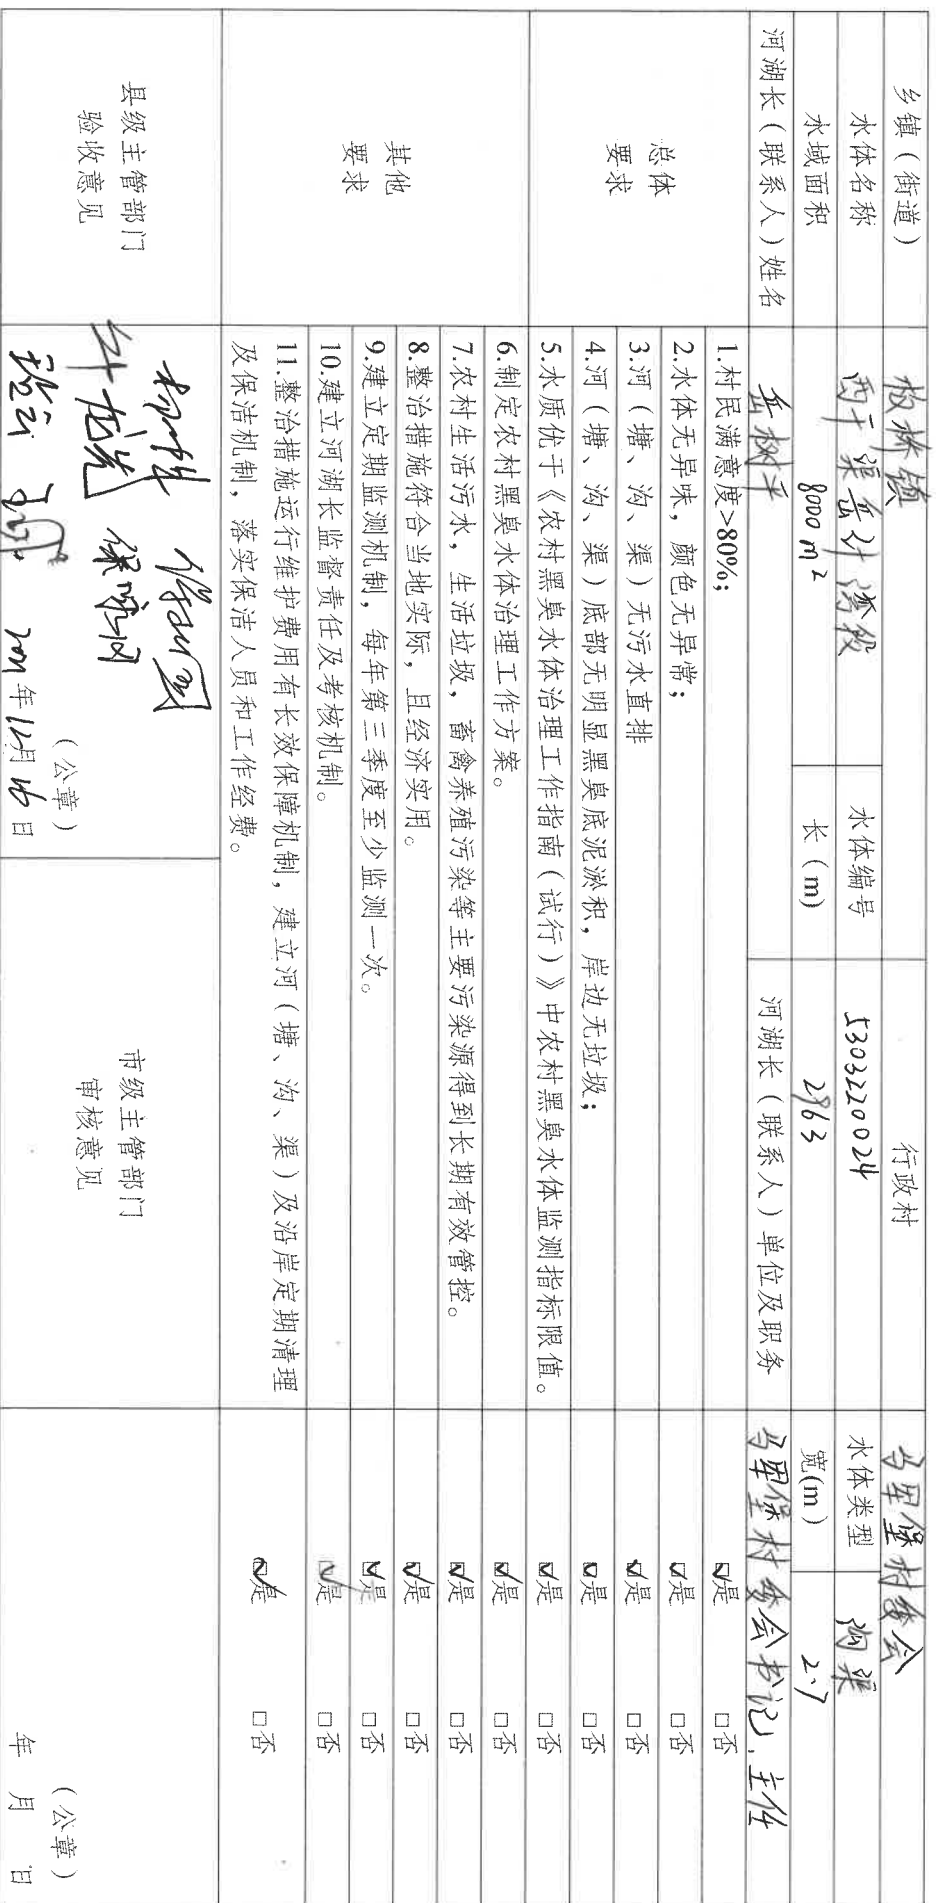 乡镇（街道） 板桥镇 行政村 马军堡村委会
水体名称 西干渠岳计湾段 水体编号 5303220024 水体类型 沟渠
水域面积 8000m² 长（m） 2963 宽(m) 2.7
河湖长（联系人）姓名 岳树平 河湖长（联系人）单位及职务 马军堡村委会书记、主任
总体
要求
1.村民满意度>80%； ☑是 □否
2.水体无异味，颜色无异常； ☑是 □否
3.河（塘、沟、渠）无污水直排 ☑是 □否
4.河（塘、沟、渠）底部无明显黑臭底泥淤积，岸边无垃圾； ☑是 □否
5.水质优于《农村黑臭水体治理工作指南（试行）》中农村黑臭水体监测指标限值。 ☑是 □否
其他
要求
6.制定农村黑臭水体治理工作方案。 ☑是 □否
7.农村生活污水，生活垃圾，畜禽养殖污染等主要污染源得到长期有效管控。 ☑是 □否
8.整治措施符合当地实际，且经济实用。 ☑是 □否
9.建立定期监测机制，每年第三季度至少监测一次。 ☑是 □否
10.建立河湖长监督责任及考核机制。 ☑是 □否
11.整治措施运行维护费用有长效保障机制，建立河（塘、沟、渠）及沿岸定期清理
及保洁机制，落实保洁人员和工作经费。 ☑是 □否
县级主管部门
验收意见
（公章）
2021年12月16日
市级主管部门
审核意见
（公章）
年 月 日